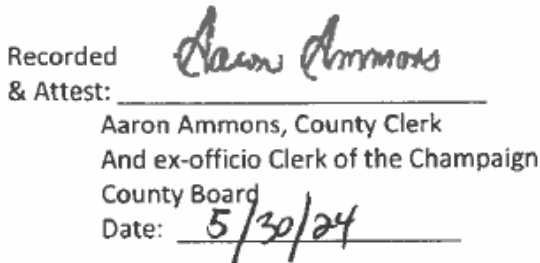 Recorded Aaron Ammons
& Attest:
Aaron Ammons, County Clerk
And ex-officio Clerk of the Champaign
County Board
Date: 5/30/24